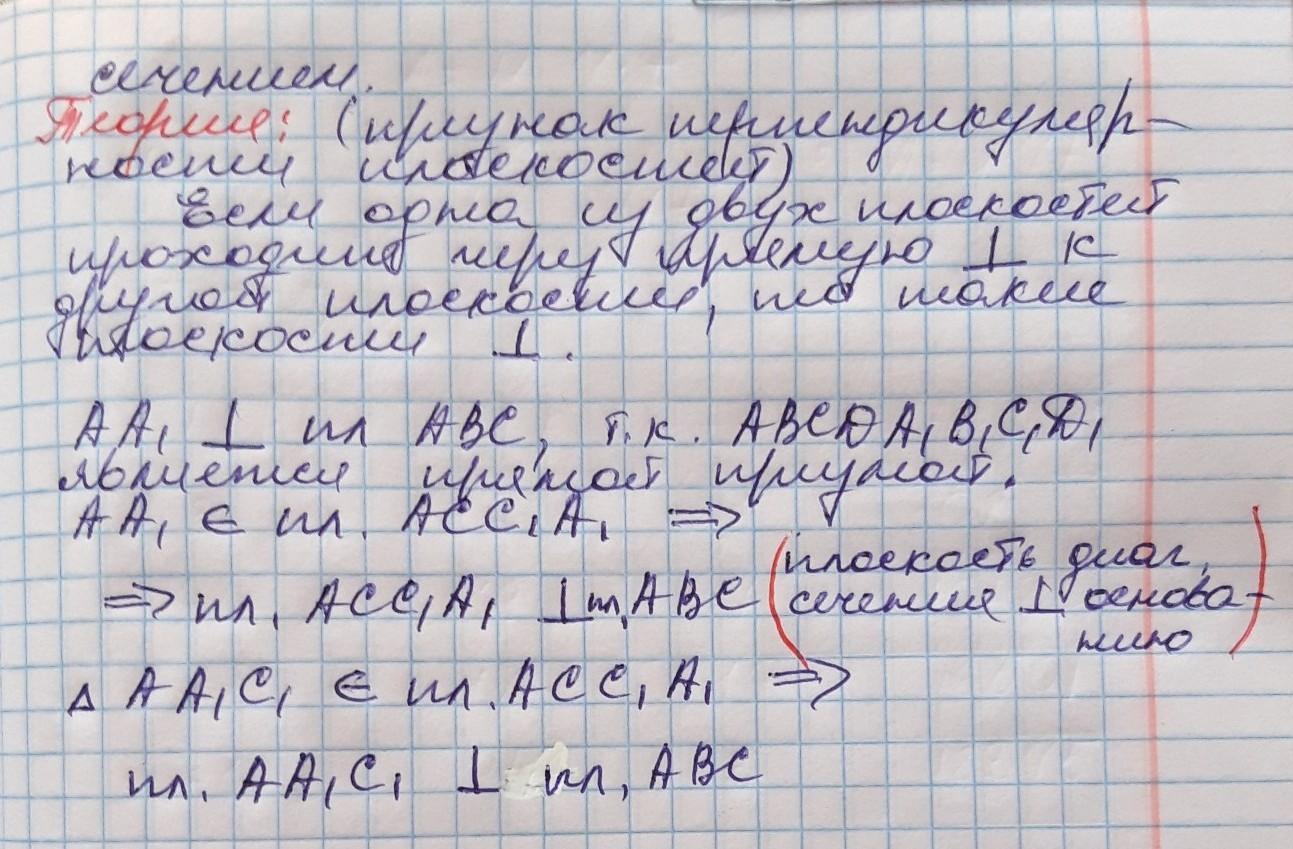 сечением.
Теория: (признак перпендикуляр-
ности плоскостей)
Если одна из двух плоскостей
проходит через прямую ⊥ к
другой плоскости, то такие
плоскости ⊥.
AA₁ ⊥ пл ABC, т.к. ABCDA₁B₁C₁D₁
является прямой призмой.
AA₁ ∈ пл. ACC₁A₁ ⇒
⇒ пл. ACC₁A₁ ⊥ пл. ABC (плоскость диаг.
сечения ⊥ основа-
нию)
△ AA₁C₁ ∈ пл. ACC₁A₁ ⇒
пл. AA₁C₁ ⊥ пл. ABC